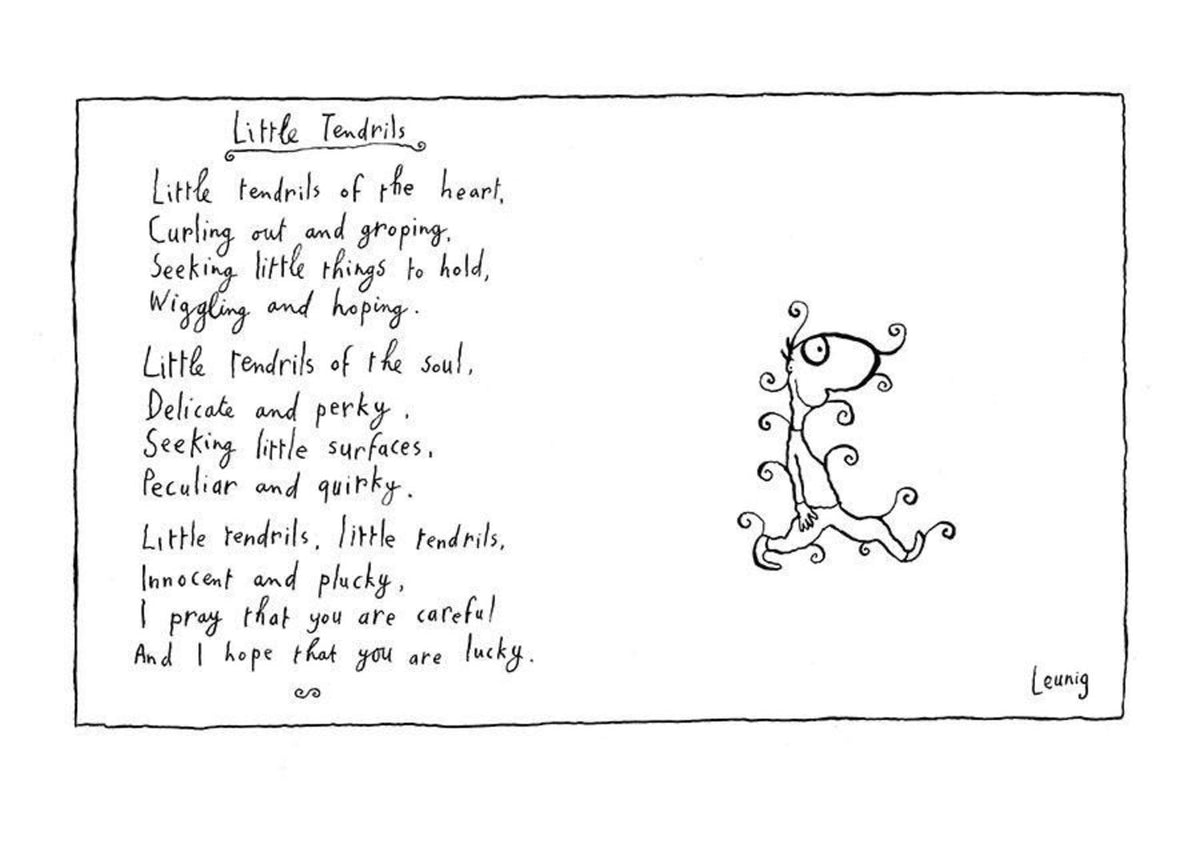 Little Tendrils
Little tendrils of the heart,
Curling out and groping,
Seeking little things to hold,
Wiggling and hoping.
Little tendrils of the soul,
Delicate and perky,
Seeking little surfaces,
Peculiar and quirky.
Little tendrils, little tendrils,
Innocent and plucky,
I pray that you are careful
And I hope that you are lucky.
Leunig